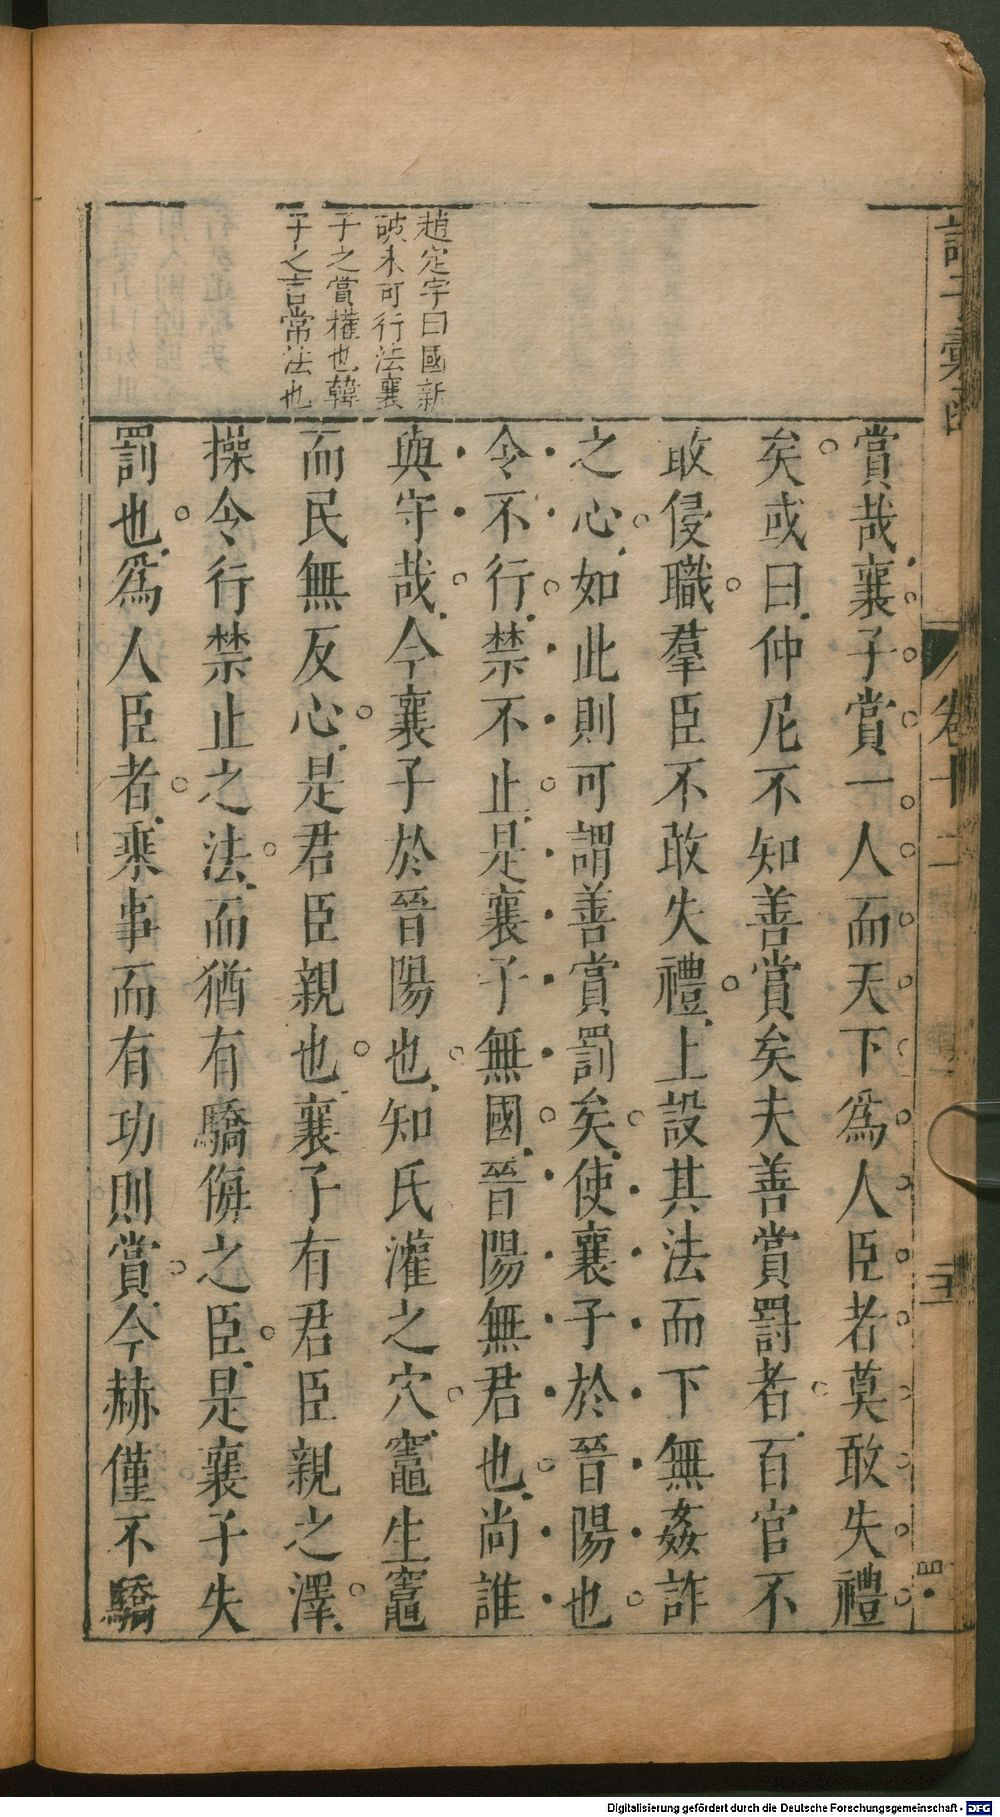 賞哉襄子賞一人而天下爲人臣者莫敢失禮
矣或曰仲尼不知善賞矣夫善賞罰者百官不
敢侵職羣臣不敢失禮上設其法而下無姦詐
之心如此則可謂善賞罰矣使襄子於晉陽也
令不行禁不止是襄子無國晉陽無君也尚誰
與守哉今襄子於晉陽也知氏灌之穴竈生竈
而民無反心是君臣親也襄子有君臣親之澤
操令行禁止之法而猶有驕侮之臣是襄子失
罰也爲人臣者乘事而有功則賞今赫僅不驕
趙定宇曰國新
破未可行法襄
子之賞權也韓
子之言常法也
卷十二
Digitalisierung gefördert durch die Deutsche Forschungsgemeinschaft - DFG